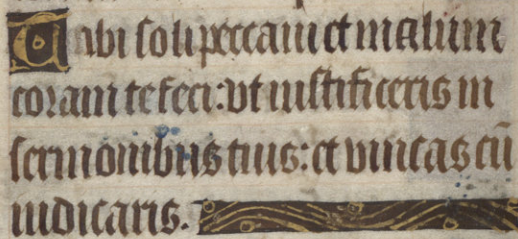 Tibi soli peccaui et malum
coram te feci: vt iustificeris in
sermonibus tuis: et vincas cū
iudicaris.